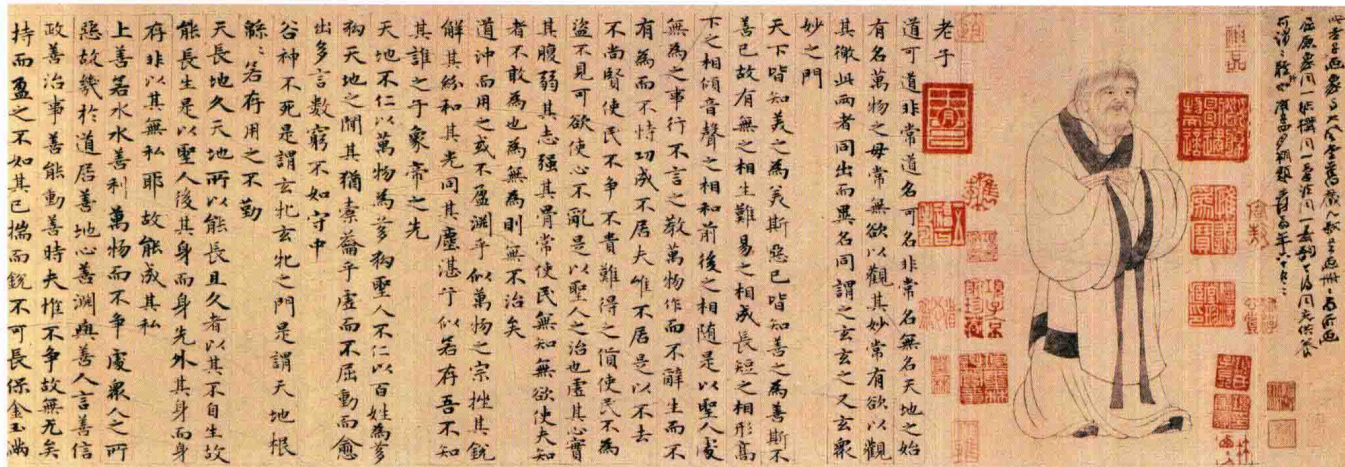 老子
道可道非常道名可名非常名無名天地之始
有名萬物之母常無欲以觀其妙常有欲以觀
其徼此兩者同出而異名同謂之玄玄之又玄衆
妙之門
天下皆知美之為美斯惡已皆知善之為善斯不
善已故有無之相生難易之相成長短之相形高
下之相傾音聲之相和前後之相隨是以聖人處
無為之事行不言之教萬物作而不辭生而不
有為而不恃功成不居夫唯不居是以不去
不尚賢使民不争不貴難得之貨使民不為
盗不見可欲使心不亂是以聖人之治也虚其心實
其腹弱其志强其骨常使民無知無欲使夫知
者不敢為也為無為則無不治矣
道沖而用之或不盈淵乎似萬物之宗挫其鋭
解其紛和其光同其塵湛兮似若存吾不知
其誰之子象帝之先
天地不仁以萬物為芻狗聖人不仁以百姓為芻
狗天地之間其猶橐籥乎虚而不屈動而愈
出多言數窮不如守中
谷神不死是謂玄牝玄牝之門是謂天地根
緜〻若存用之不勤
天長地久天地所以能長且久者以其不自生故
能長生是以聖人後其身而身先外其身而身
存非以其無私耶故能成其私
上善若水水善利萬物而不争處衆人之所
惡故幾於道居善地心善淵與善人言善信
政善治事善能動善時夫惟不争故無尤矣
持而盈之不如其已揣而鋭不可長保金玉滿